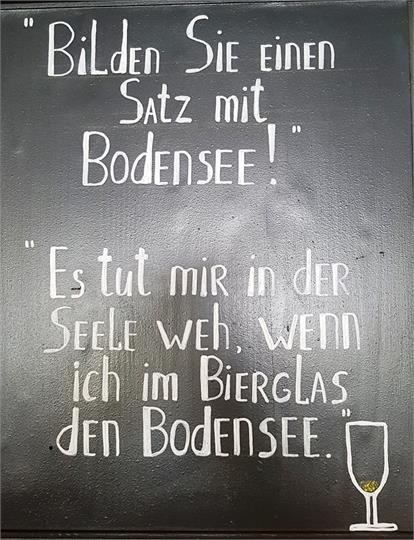 "Bilden Sie einen
Satz mit
Bodensee!"
"Es tut mir in der
Seele weh, wenn
ich im Bierglas
den Bodensee."